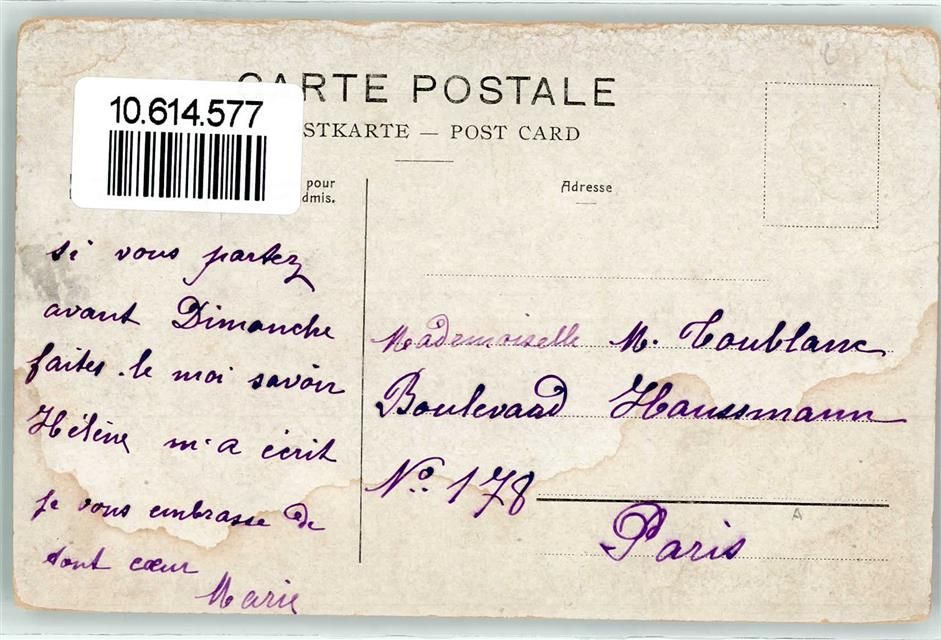 CARTE POSTALE
10.614.577
STKARTE — POST CARD
pour
dmis.
Adresse
si vous partez
avant Dimanche
faites-le moi savoir
Hélène m'a écrit
je vous embrasse de
tout cœur
Marie
Mademoiselle M. Toublanc
Boulevaad Haussmann
No. 178
Paris
A